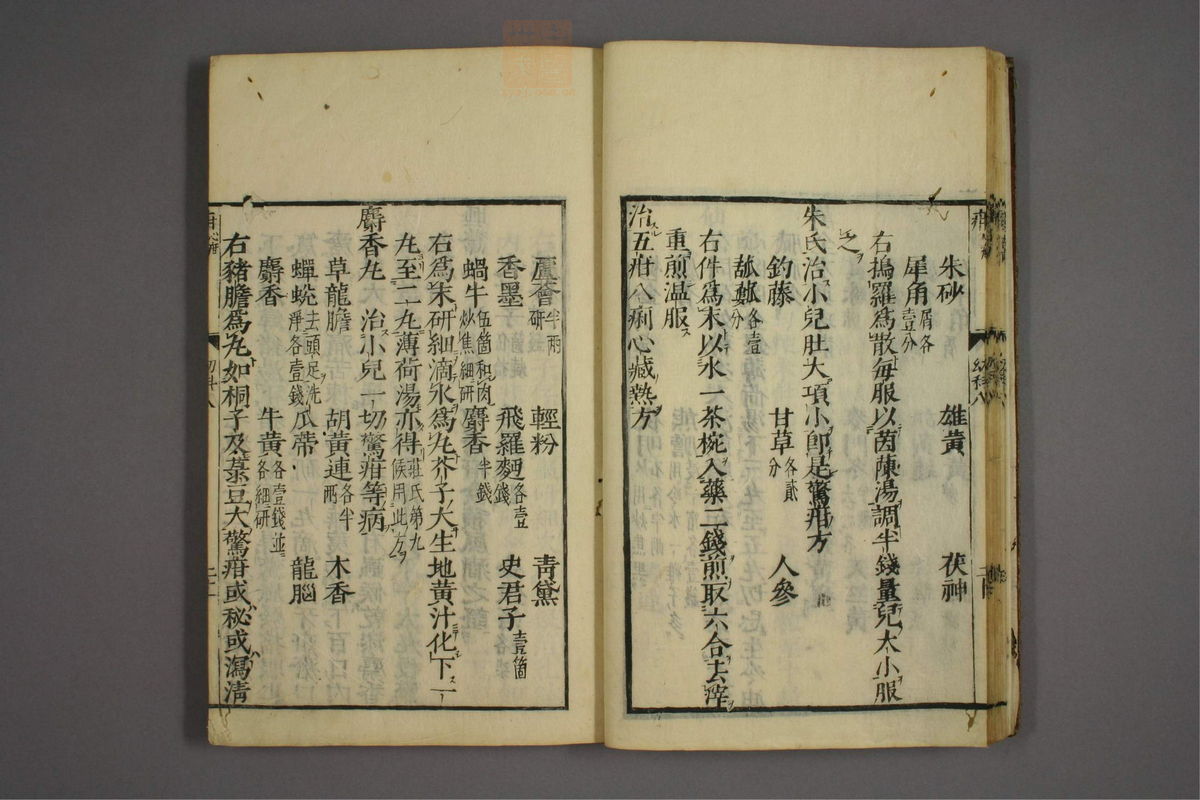 朱砂 雄黃 茯神
犀角屑各壹分
右搗羅爲散每服以茵蔯湯調半錢量兒大小服
之
朱氏治小兒肚大項小卽是驚疳方
釣藤 甘草各貳分 人參
各壹分
右件爲末以水一茶椀入藥二錢煎取六合去滓
重煎温服
治五疳八痢心臓熱方
蘆薈半兩研 輕粉 青黛
香墨 飛羅麪各壹錢 史君子壹箇
蝸牛伍箇和肉炒焦細研 麝香半錢
右爲末研細滴水爲丸芥子大生地黃汁化下一
丸至二丸薄荷湯亦得莊氏第九候用此方
麝香丸 治小兒一切驚疳等病
草龍膽 胡黃連各半兩 木香
蟬蛻去頭足洗淨各壹錢 瓜蒂 龍腦
麝香 牛黃各壹錢並各細研
右豬膽爲丸如桐子及菉豆大驚疳或秘或瀉淸